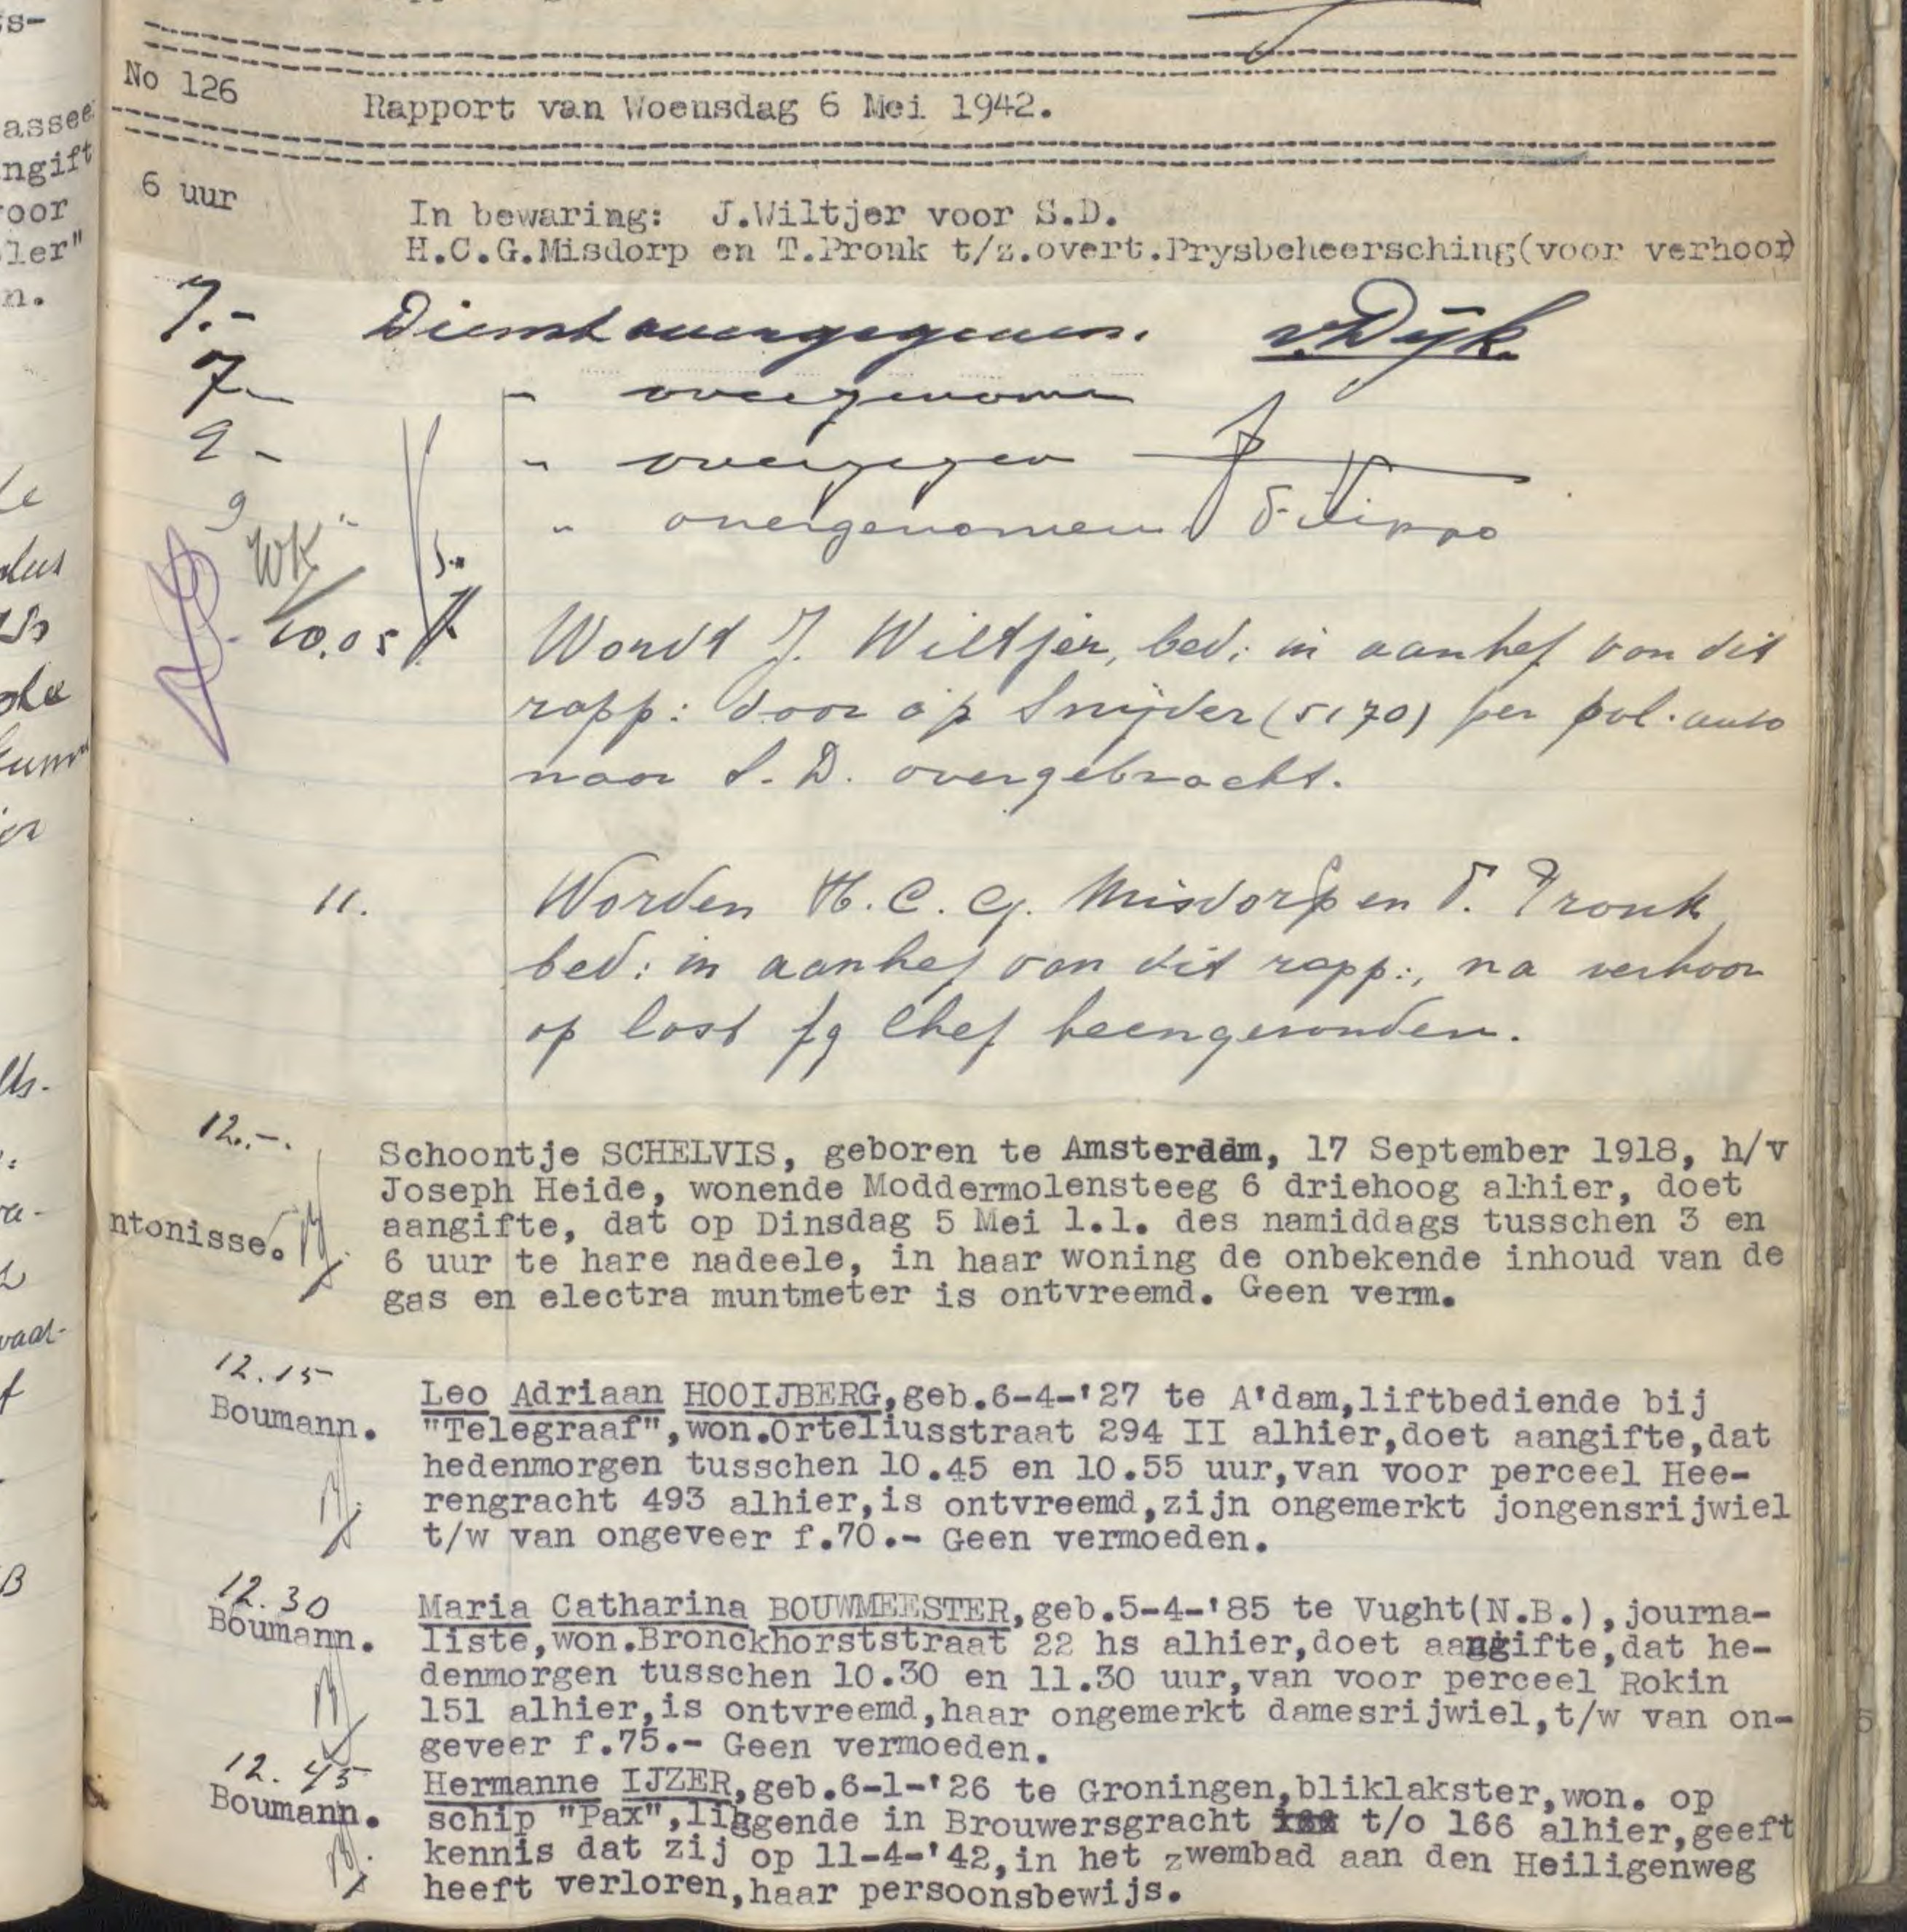 No 126
Rapport van Woensdag 6 Mei 1942.
6 uur
In bewaring: J.Wiltjer voor S.D.
H.C.G.Misdorp en T.Pronk t/z.overt.Prysbeheersching(voor verhoor)
7.- Dienst overgegeven. v.Dijk.
7- " overgenomen
9- " overgegeven
9 " " overgenomen
WK
10.05 Wordt J. Wiltjer, bed: in aanhef van dit
rapp: door ap Snijder (5170) per pol. auto
naar S.D. overgebracht.
11. Worden H.C.G. Misdorp en T. Pronk,
bed: in aanhef van dit rapp:, na verhoor
op last fg Chef heengezonden.
12.-.
Schoontje SCHELVIS, geboren te Amsterdam, 17 September 1918, h/v
Joseph Heide, wonende Moddermolensteeg 6 driehoog alhier, doet
ntonisse. aangifte, dat op Dinsdag 5 Mei l.l. des namiddags tusschen 3 en
6 uur te hare nadeele, in haar woning de onbekende inhoud van de
gas en electra muntmeter is ontvreemd. Geen verm.
12.15
Boumann. Leo Adriaan HOOIJBERG,geb.6-4-'27 te A'dam,liftbediende bij
"Telegraaf",won.Orteliusstraat 294 II alhier,doet aangifte,dat
hedenmorgen tusschen 10.45 en 10.55 uur,van voor perceel Hee-
rengracht 493 alhier,is ontvreemd,zijn ongemerkt jongensrijwiel
t/w van ongeveer f.70.- Geen vermoeden.
12.30
Boumann. Maria Catharina BOUWMEESTER,geb.5-4-'85 te Vught(N.B.),journa-
liste,won.Bronckhorststraat 22 hs alhier,doet aangifte,dat he-
denmorgen tusschen 10.30 en 11.30 uur,van voor perceel Rokin
151 alhier,is ontvreemd,haar ongemerkt damesrijwiel,t/w van on-
geveer f.75.- Geen vermoeden.
12.45
Boumann. Hermanne IJZER,geb.6-1-'26 te Groningen,bliklakster,won. op
schip "Pax",liggende in Brouwersgracht t/o 166 alhier,geeft
kennis dat zij op 11-4-'42,in het zwembad aan den Heiligenweg
heeft verloren,haar persoonsbewijs.